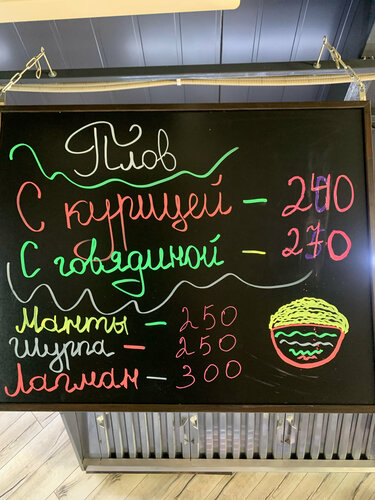 Плов
С курицей - 240
С говядиной - 270
Манты - 250
Шурпа - 250
Лагман - 300